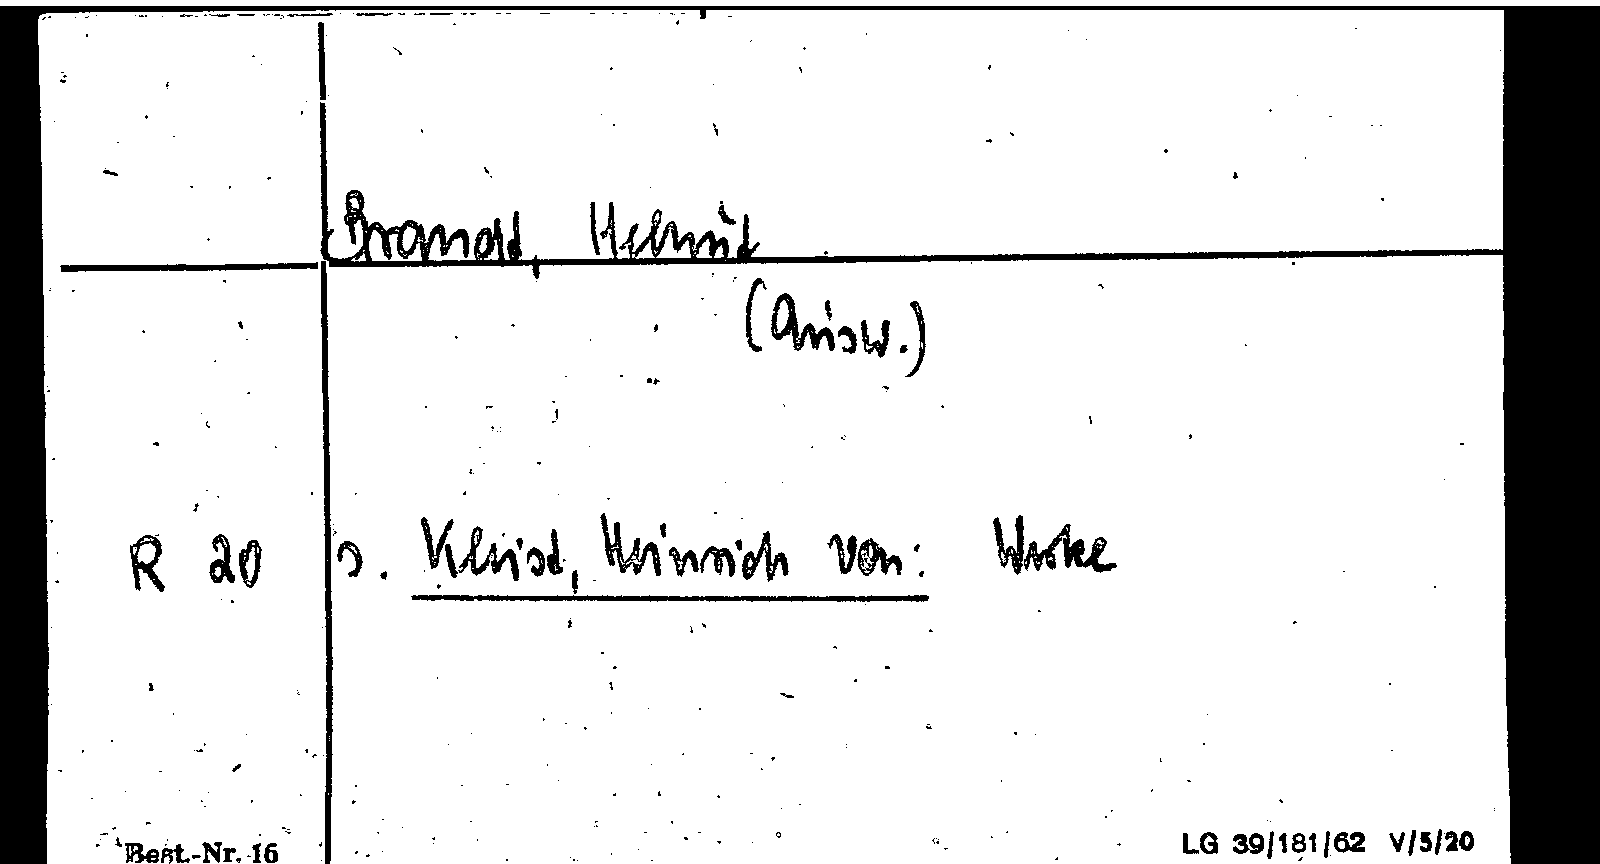 Brandt, Helmut
(Ausw.)
R 20 s. Kleist, Heinrich von: Werke
Best.-Nr. 16 LG 39/181/62 V/5/20